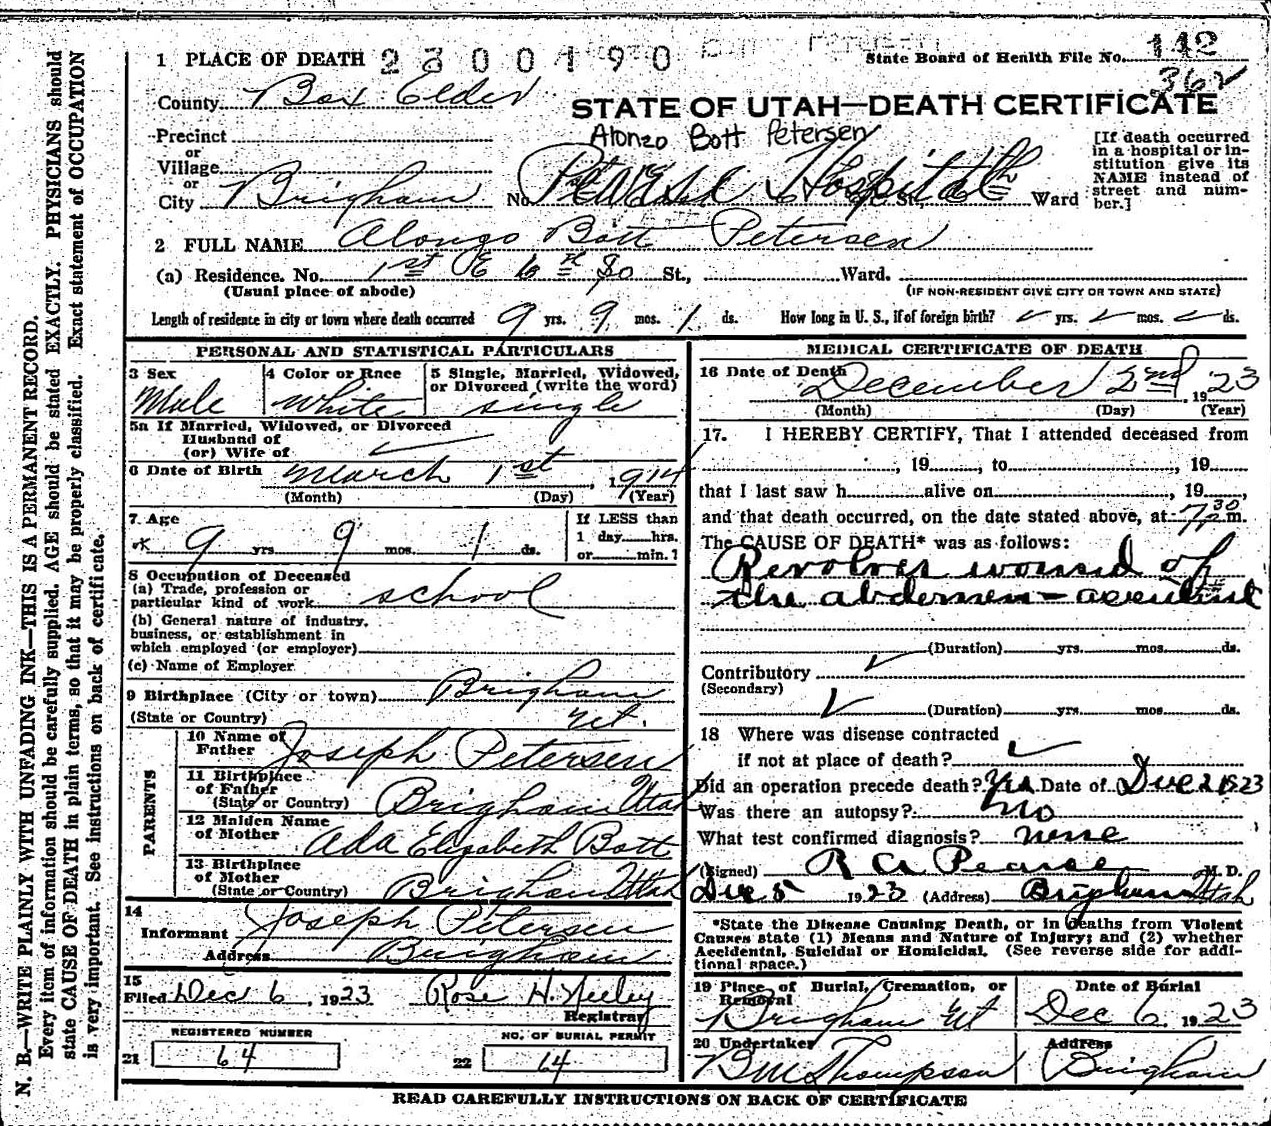 1 PLACE OF DEATH 2300190
State Board of Health File No. 142
362
County Box Elder
STATE OF UTAH—DEATH CERTIFICATE
Alonzo Bott Petersen
Precinct
or
Village
or
City Brigham No. Pearse Hospital St., Ward
[If death occurred
in a hospital or in-
stitution give its
NAME instead of
street and num-
ber.]
2 FULL NAME Alonzo Bott Petersen
(a) Residence. No. 1st E 6th So St., Ward.
(Usual place of abode) (IF NON-RESIDENT GIVE CITY OR TOWN AND STATE)
Length of residence in city or town where death occurred 9 yrs. 9 mos. 1 ds. How long in U. S., if of foreign birth? yrs. mos. ds.
PERSONAL AND STATISTICAL PARTICULARS
3 Sex Male
4 Color or Race White
5 Single, Married, Widowed,
or Divorced (write the word)
single
5a If Married, Widowed, or Divorced
Husband of
(or) Wife of
6 Date of Birth March 1st, 1914
(Month) (Day) (Year)
7 Age
9 yrs. 9 mos. 1 ds.
If LESS than
1 day hrs.
or min.?
8 Occupation of Deceased
(a) Trade, profession or
particular kind of work school
(b) General nature of industry,
business, or establishment in
which employed (or employer)
(c) Name of Employer
9 Birthplace (City or town) Brigham
(State or Country) Ut.
PARENTS
10 Name of
Father Joseph Petersen
11 Birthplace
of Father
(State or Country) Brigham Utah
12 Maiden Name
of Mother Ada Elizabeth Bott
13 Birthplace
of Mother
(State or Country) Brigham Utah
14
Informant Joseph Petersen
Address Brigham
15
Filed Dec 6, 1923 Rose H. Neeley
Registrar
REGISTERED NUMBER
21 64
NO. OF BURIAL PERMIT
22 64
MEDICAL CERTIFICATE OF DEATH
16 Date of Death December 2nd, 1923
(Month) (Day) (Year)
17. I HEREBY CERTIFY, That I attended deceased from
, 19 , to , 19
that I last saw h alive on , 19 ,
and that death occurred, on the date stated above, at 7 30 p.m.
The CAUSE OF DEATH* was as follows:
Revolver wound of
the abdomen – accident
(Duration) yrs. mos. ds.
Contributory
(Secondary)
(Duration) yrs. mos. ds.
18 Where was disease contracted
if not at place of death?
Did an operation precede death? Yes Date of Dec 2 1923
Was there an autopsy? No
What test confirmed diagnosis? none
(Signed) R A Pearse M. D.
Dec 5 1923 (Address) Brigham Utah
*State the Disease Causing Death, or in deaths from Violent
Causes state (1) Means and Nature of Injury; and (2) whether
Accidental, Suicidal or Homicidal. (See reverse side for addi-
tional space.)
19 Place of Burial, Cremation, or
Removal
Brigham Ut
Date of Burial
Dec 6 1923
20 Undertaker
B M Thompson
Address
Brigham
READ CAREFULLY INSTRUCTIONS ON BACK OF CERTIFICATE
N. B.—WRITE PLAINLY WITH UNFADING INK—THIS IS A PERMANENT RECORD.
Every item of information should be carefully supplied. AGE should be stated EXACTLY. PHYSICIANS should
state CAUSE OF DEATH in plain terms, so that it may be properly classified. Exact statement of OCCUPATION
is very important. See instructions on back of certificate.